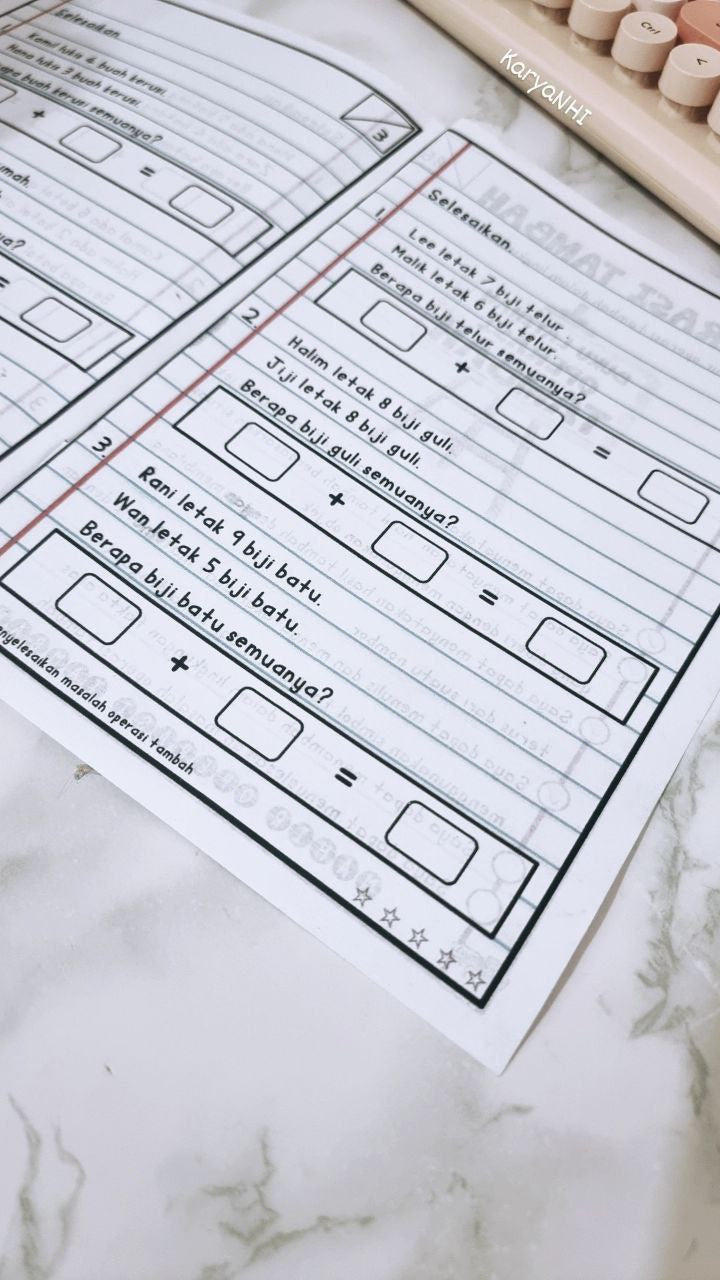 Selesaikan.
Kamil lukis 4 buah kerusi.
lukis 3 buah kerusi.
buah kerusi semuanya?
+
=
3
=
KaryaNHI
Ctrl
<
Selesaikan.
1.
Lee letak 7 biji telur.
Malik letak 6 biji telur.
Berapa biji telur semuanya?
+ =
2.
Halim letak 8 biji guli.
Jiji letak 8 biji guli.
Berapa biji guli semuanya?
+ =
3.
Rani letak 9 biji batu.
Wan letak 5 biji batu.
Berapa biji batu semuanya?
+ =
masalah operasi tambah